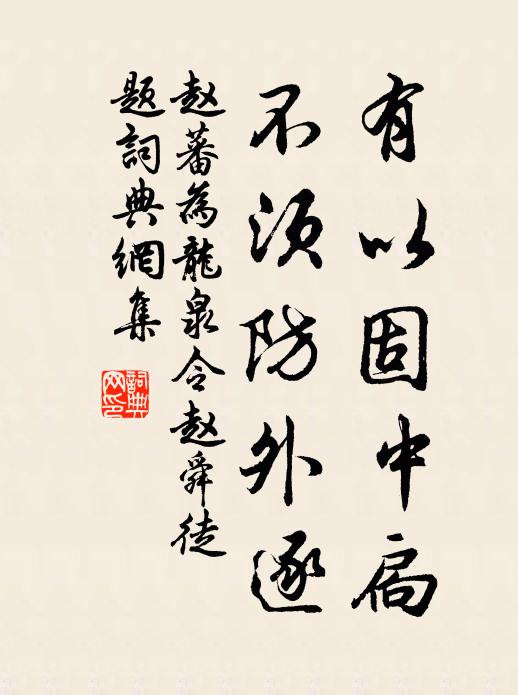 有以固中扃
不须防外逐
赵蕃為龍泉令赵舜徒
题詞典網集
詞典
网印